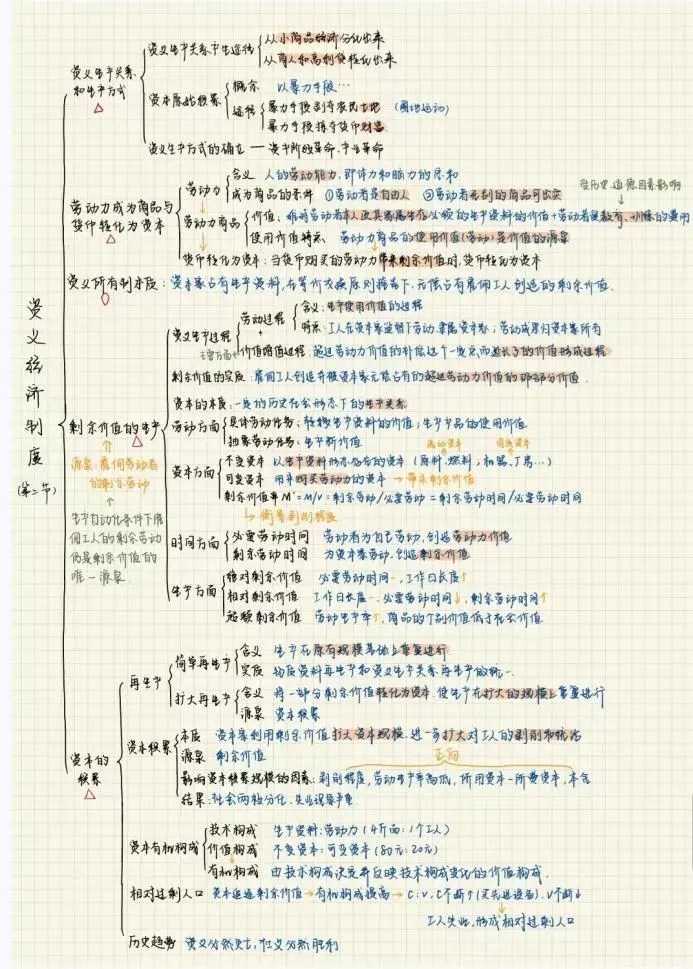 资义经济制度
(第二节)
资义生产关系和生产方式
资义生产关系产生途径
从小商品经济分化出来
从商人和高利贷转化出来
资本原始积累
概念 以暴力手段…
途径
暴力手段剥夺农民土地 (圈地运动)
暴力手段掠夺货币财富
资义生产方式的确立 — 资产阶级革命、产业革命
劳动力成为商品与货币转化为资本
劳动力
含义 人的劳动能力,即体力和脑力的总和
成为商品的条件 ①劳动者是自由人 ②劳动者
受历史道德因素影响
劳动力商品
价值:维持劳动者本人及其家属生存必须的生产资料的价值+劳动者受教育、训练的费用
使用价值特点: 劳动力商品的使用价值(劳动)是价值的源泉
货币转化为资本:当货币购买的劳动力带来剩余价值时,货币转化为资本
资义所有制本质:资本家占有生产资料,在等价交换原则掩盖下,无偿占有雇佣工人创造的剩余价值.
剩余价值的生产
源泉:雇佣劳动者的剩余劳动
生产自动化条件下雇佣工人的剩余劳动仍是剩余价值的唯一源泉
资义生产过程
劳动过程
含义:生产使用价值的过程
特点:工人在资本家监督下劳动,隶属资本家;劳动成果归资本家所有
+
价值增值过程:超过劳动力价值的补偿这个一定点而延长了的价值形成过程
剩余价值的实质:雇佣工人创造并被资本家无偿占有的超过劳动力价值的那部分价值.
资本的本质:一定的历史社会形态下的生产关系
劳动方面
具体劳动任务:转移生产资料的价值;生产产品的使用价值
抽象劳动任务:生产新价值
资本方面
流动资本 固定资本
不变资本 以生产资料形态存在的资本 (原料、燃料;机器、厂房…)
可变资本 用来购买劳动力的资本 → 带来剩余价值
剩余价值率M'=M/V=剩余劳动/必要劳动=剩余劳动时间/必要劳动时间
↳衡量剥削程度
时间方面
必要劳动时间 劳动者为自己劳动,创造劳动力价值
剩余劳动时间 为资本家劳动,创造剩余价值
生产方面
绝对剩余价值 必要劳动时间一,工作日长度↑
相对剩余价值 工作日长度一,必要劳动时间↓,剩余劳动时间↑
超额剩余价值 劳动生产率↑,商品的个别价值低于社会价值
资本的积累
再生产
简单再生产
含义 生产在原有规模基础上重复进行
实质 物质资料再生产和资义生产关系再生产的统一.
扩大再生产
含义 将一部分剩余价值转化为资本,使生产在扩大的规模上重复进行
源泉 资本积累
资本积累
本质 资本家利用剩余价值扩大资本规模,进一步扩大对工人的剥削和统治
源泉 剩余价值
正向
影响资本积累规模的因素:剥削程度,劳动生产率高低,所用资本-所费资本,
结果:社会两极分化、失业现象严重
资本有机构成
技术构成 生产资料:劳动力 (4斤面:1个工人)
价值构成 不变资本:可变资本 (80元:20元)
有机构成 由技术构成决定并反映技术构成变化的价值构成.
相对过剩人口 资本追逐剩余价值→有机构成提高→C:V,C不断↑(买先进设备),V不断↓
工人失业,形成相对过剩人口
历史趋势 资义必然灭亡,社义必然胜利